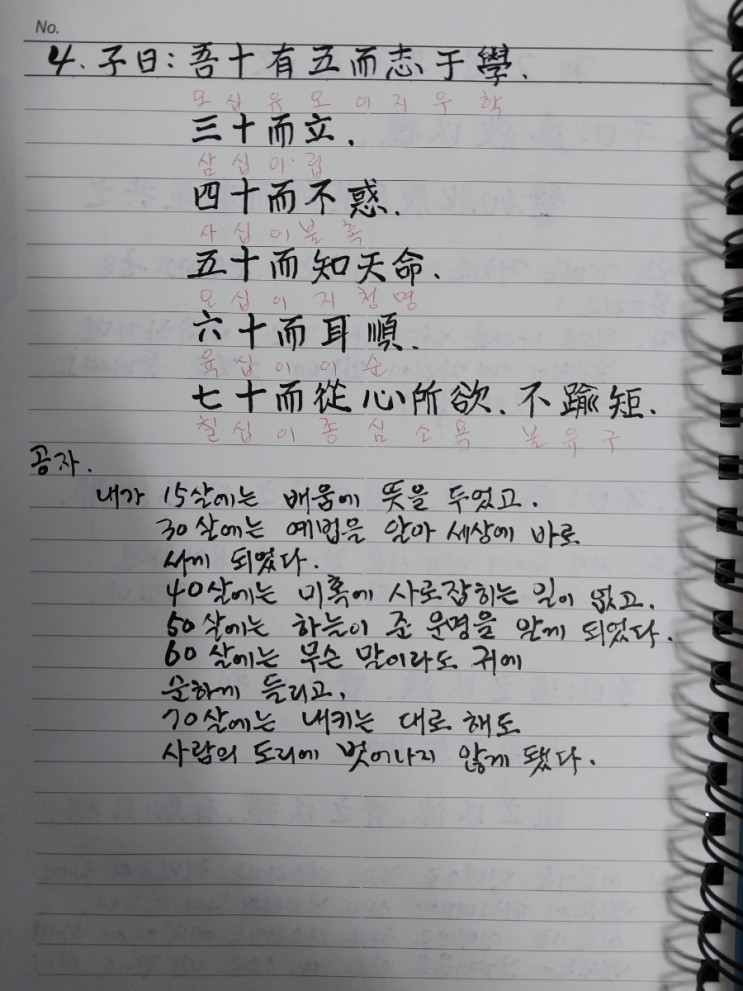 No.
4. 子曰: 吾十有五而志于學.
오 십 유 오 이 지 우 학
三十而立.
삼 십 이 립
四十而不惑.
사 십 이 불 혹
五十而知天命.
오 십 이 지 청 명
六十而耳順.
육 십 이 이 순
七十而從心所欲. 不踰矩.
칠 십 이 종 심 소 욕 불 유 구
공자.
내가 15살에는 배움에 뜻을 두었고.
30살에는 예법을 알아 세상에 바로
서게 되었다.
40살에는 미혹에 사로잡히는 일이 없고.
50살에는 하늘이 준 운명을 알게 되었다.
60살에는 무슨 말이라도 귀에
순하게 들리고.
70살에는 내키는 대로 해도
사람의 도리에 벗어나지 않게 됐다.